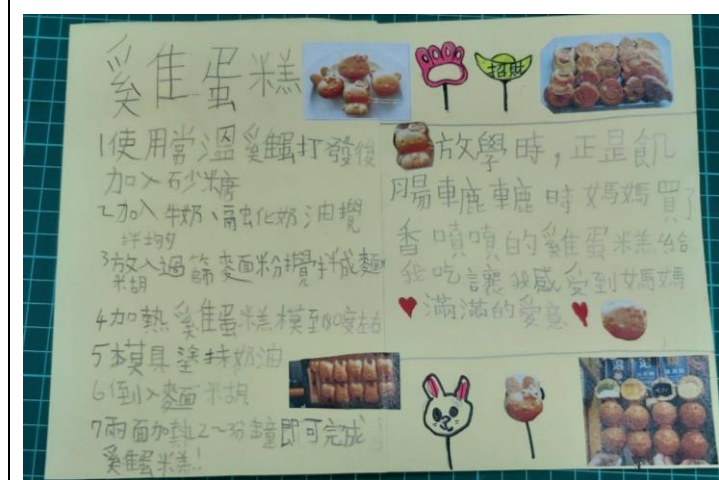 雞蛋糕
1使用常溫雞蛋打發後
加入砂糖
2加入牛奶、融化奶油攪
拌均勻
3放入過篩麵粉攪拌成麵
糊
4加熱雞蛋糕模至180度左右
5模具塗抹奶油
6倒入麵糊
7兩面加熱2～3分鐘即可完成
雞蛋糕!
招財
放學時,正是飢
腸轆轆時媽媽買了
香噴噴的雞蛋糕給
我吃讓我感受到媽媽
滿滿的愛意